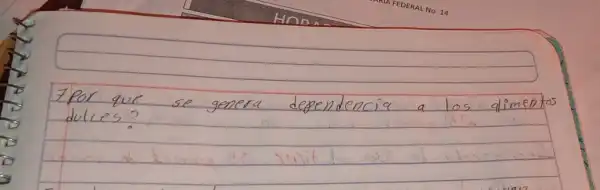 RIA FEDERAL No. 14
HORA
¿Por que se genera dependencia a los alimentos
dulces?